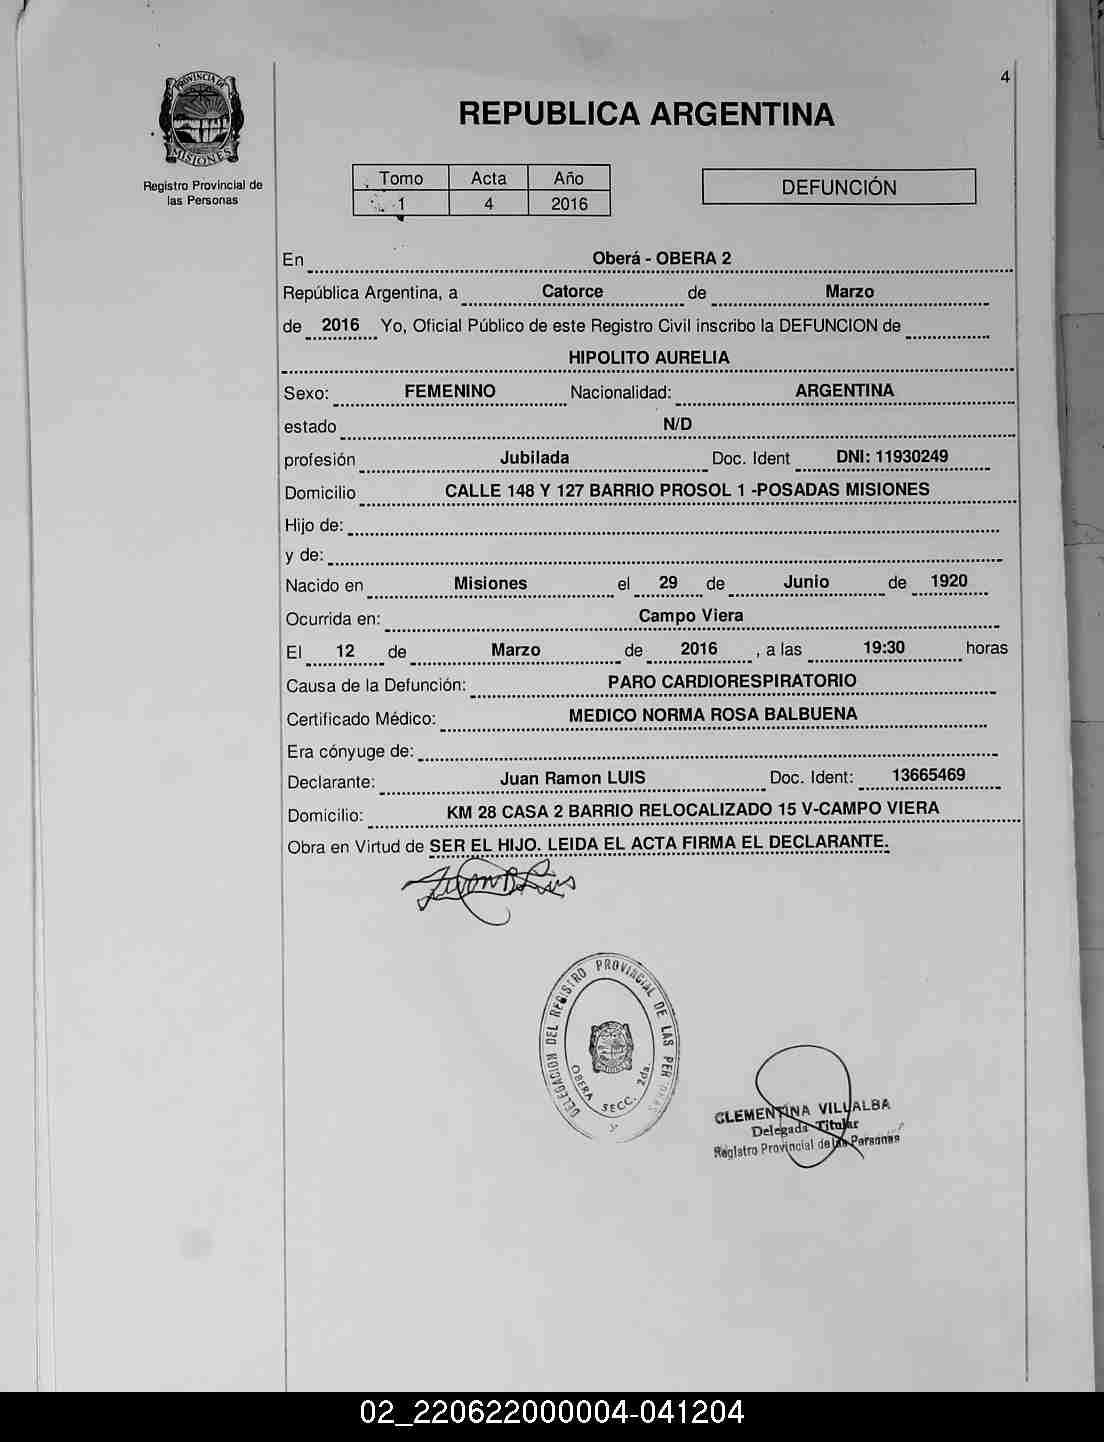 4
PROVINCIA DE
MISIONES
Registro Provincial de
las Personas
REPUBLICA ARGENTINA
Tomo Acta Año
1 4 2016
DEFUNCIÓN
En Oberá - OBERA 2
República Argentina, a Catorce de Marzo
de 2016 Yo, Oficial Público de este Registro Civil inscribo la DEFUNCION de
HIPOLITO AURELIA
Sexo: FEMENINO Nacionalidad: ARGENTINA
estado N/D
profesión Jubilada Doc. Ident DNI: 11930249
Domicilio CALLE 148 Y 127 BARRIO PROSOL 1 -POSADAS MISIONES
Hijo de:
y de:
Nacido en Misiones el 29 de Junio de 1920
Ocurrida en: Campo Viera
El 12 de Marzo de 2016 , a las 19:30 horas
Causa de la Defunción: PARO CARDIORESPIRATORIO
Certificado Médico: MEDICO NORMA ROSA BALBUENA
Era cónyuge de:
Declarante: Juan Ramon LUIS Doc. Ident: 13665469
Domicilio: KM 28 CASA 2 BARRIO RELOCALIZADO 15 V-CAMPO VIERA
Obra en Virtud de SER EL HIJO. LEIDA EL ACTA FIRMA EL DECLARANTE.
DELEGACION DEL REGISTRO PROVINCIAL DE LAS PERSONAS
OBERA SECC. 2da.
CLEMENTINA VILLALBA
Delegada Titular
Registro Provincial de las Personas
02_220622000004-041204